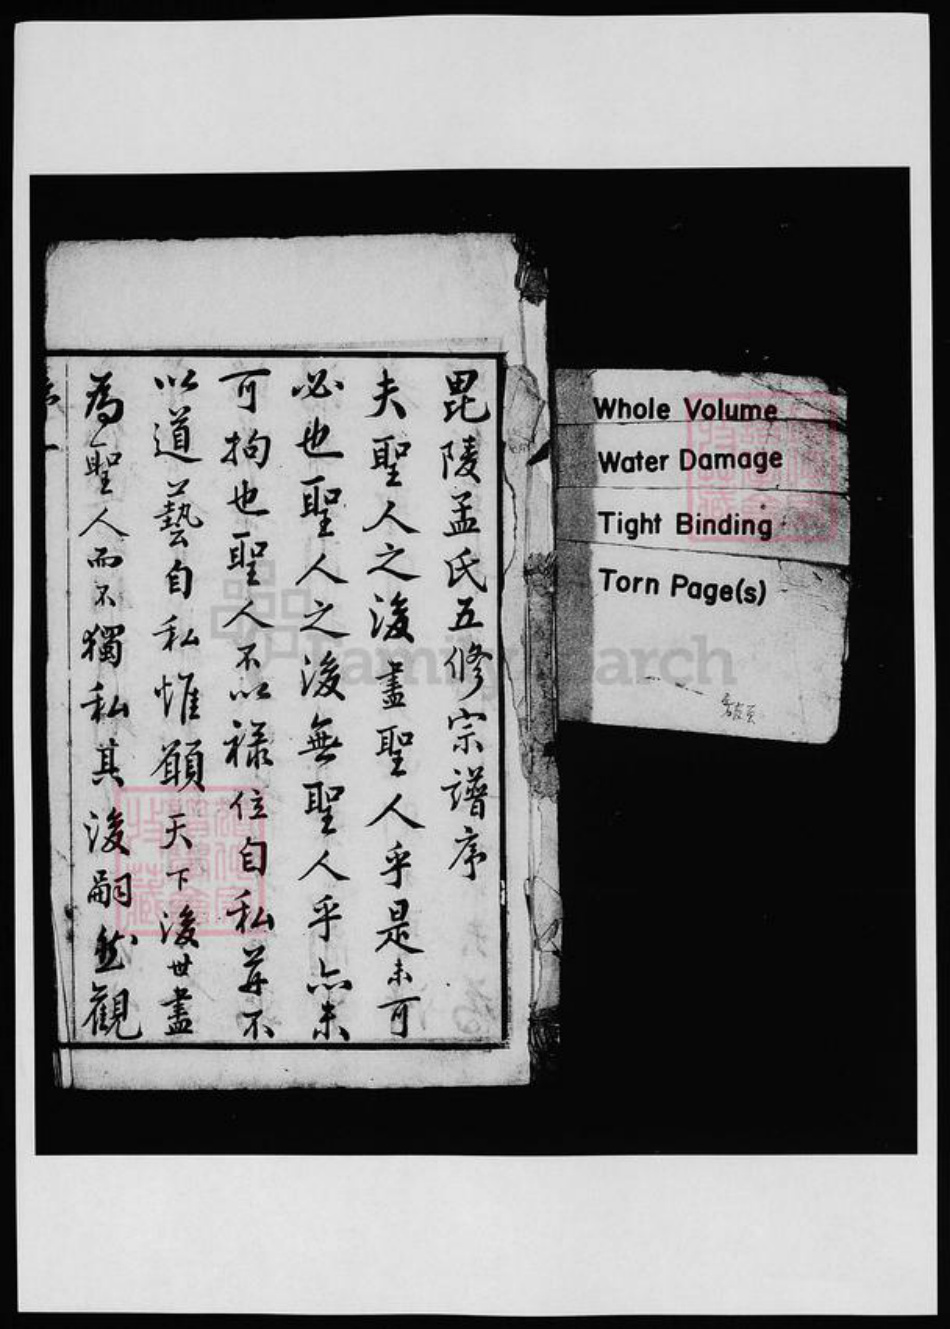 毘陵孟氏五修宗譜序
夫聖人之後盡聖人乎是未可
必也聖人之後無聖人乎亦未
可拘也聖人不以祿位自私並不
以道藝自私惟願天下後世盡
為聖人而不獨私其後嗣然觀
Whole Volume
Water Damage
Tight Binding
Torn Page(s)
FamilySearch